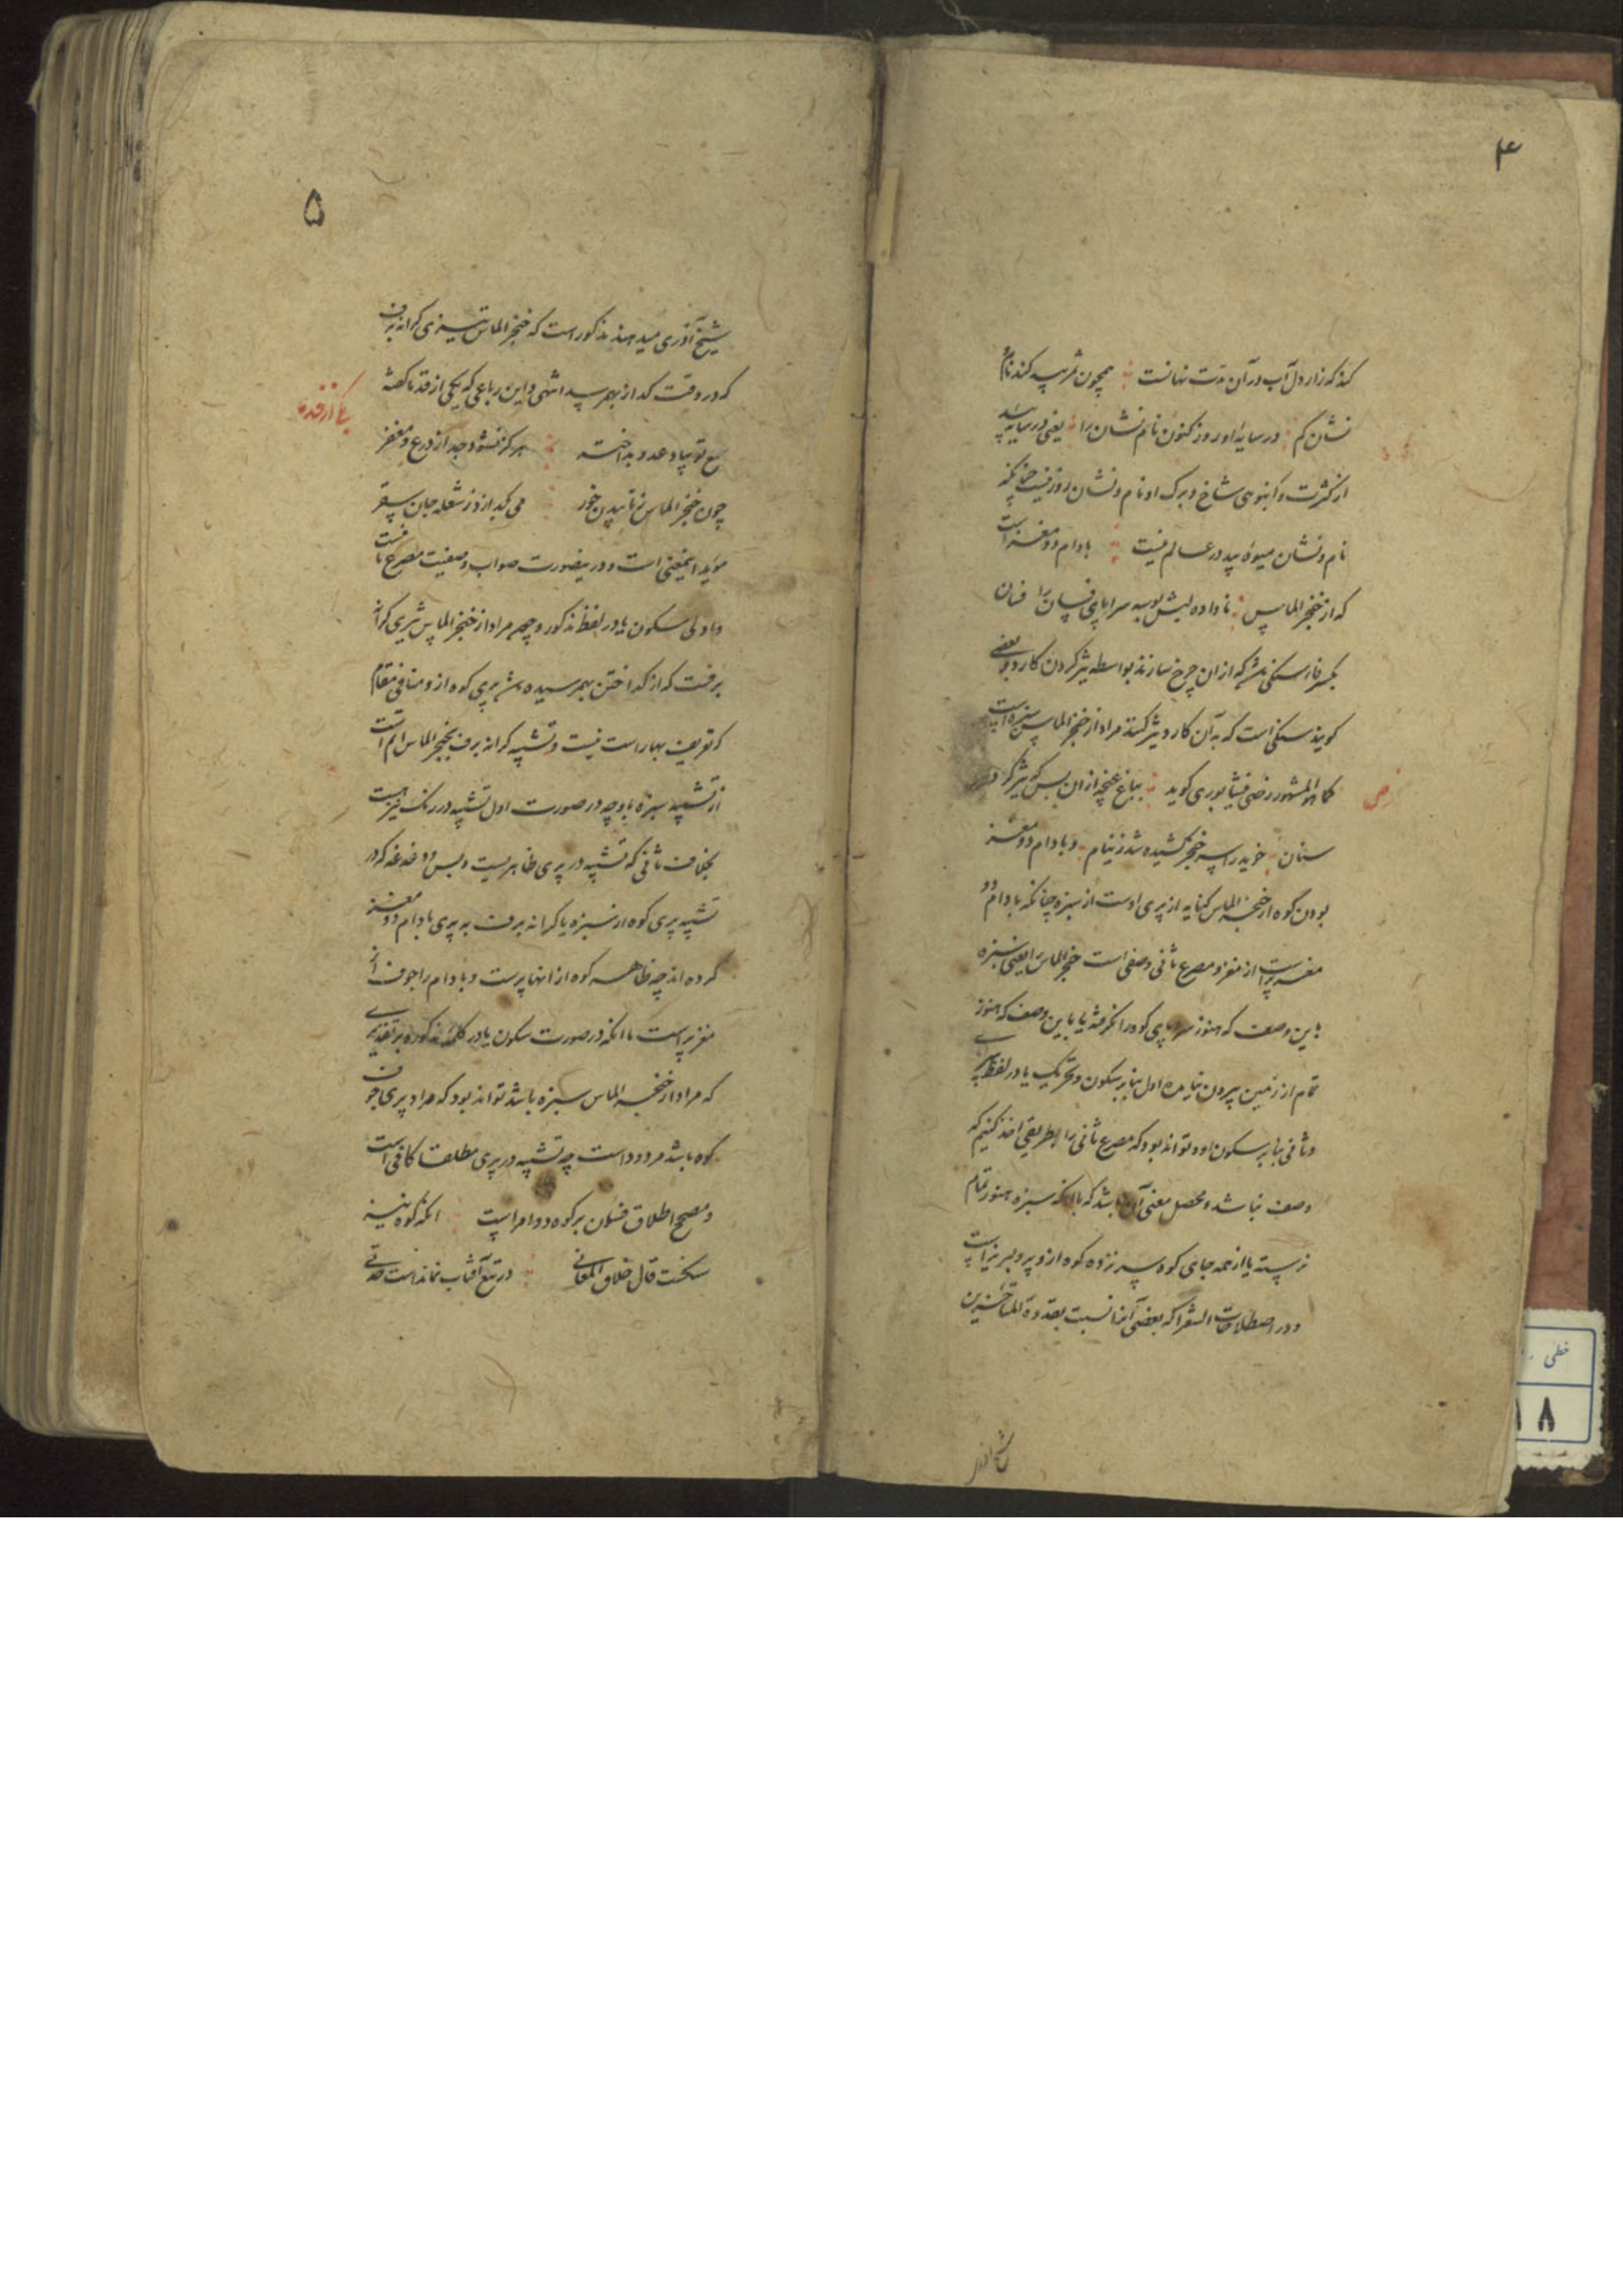 ۴
کند که راز دل آب در آن مدت نهانست همچون ثمر بید کند نام و
نشان گم در سایه او روز کنون نام و نشان را یعنی در سایه بید
از کثرت و انبوهی شاخ و برک او نام و نشان روز نیست چنانکه
نام و نشان میوه بید در عالم نیست بادام دو مغز است
که از خنجر الماس ناداده لبش بوسه سراپای فسان را فسان
بکسر فاء سنگی باشد که از ان چرخ سازند بواسطه تیز کردن کارد و بعضی
کویند سنگی است که به آن کارد تیز کنند مراد از خنجر الماس سبزه است
کما هو المشهور رضی نیشابوری کوید بباغ غنچه ازان پس که تیز کرد
سنان خوید راسر خنجر کشیده شد ز نیام و بادام دو مغز
بودن کوه از خنجر الماس کنایه از پری اوست از سبزه چنانکه بادام دو
مغز پر است از مغز و مصرع ثانی وصفی است خنجر الماس را یعنی سبزه
باین وصف که هنوز سراپای کوه را نگرفته یا باین وصف که هنوز
تمام از زمین بیرون نیامده اول بنا بر سکون و تحریک یا در لفظ
و ثانی بنا بر سکون او و تواند بود که مصرع ثانی را بطریقی اخذ کنیم که
وصف نباشد و محصل معنی آن باشد که با آنکه سبزه هنوز تمام
نرسته یا از همه جای کوه سر نزده کوه از و پر و لبریز است
و در اصطلاحات الشعرا که بعضی آنرا نسبت بقدوة المتاخرین
۵
شیخ آذری میدهند مذکور است که خنجر الماس تیزی کرانه برف
که در وقت کداز بهم رسد انتهی و این رباعی که یکی از قدما گفته
یکی از قدما
تیغ تو بپاد عدو بداختر هرکز نشود جدا از درع و مغفر
چون خنجر الماس ز تابیدن خور می بکدازد ز شعله جان
مؤید اینمعنی است و در ینصورت صواب وصفیت مصرع ثانیست
و اولی سکون یا در لفظ مذکور و چون مراد از خنجر الماس تیزی کرانه
برفست که از کداختن بهم رسیده باشد پری کوه از و منافی مقام
که تعریف بهار است نیست و تشبیه کرانه برف بخنجر الماس اتم است
از تشبیه سبزه باو چه در صورت اول تشبیه در رنک نیز هست
بخلاف ثانی که تشبیه در پری ظاهریست و بس و دغدغه که در
تشبیه پری کوه از سبزه یا کرانه برف به پری بادام دو مغز
کرده اند چه ظاهر کوه از انها پرست و بادام را جوف از
مغز پر است با انکه در صورت سکون یا در کلمه مذکوره بر تقدیری
که مراد از خنجر الماس سبزه باشد تواند بود که مراد پری جوف
کوه باشد مردود است چه تشبیه در پری مطلقا کافی است
و مصحح اطلاق فسان بر کوه دو امر است انکه کوه نیز
سنگست قال خلاق المعانی در تیغ آفتاب نماندست حدتی
خطی
۱۸